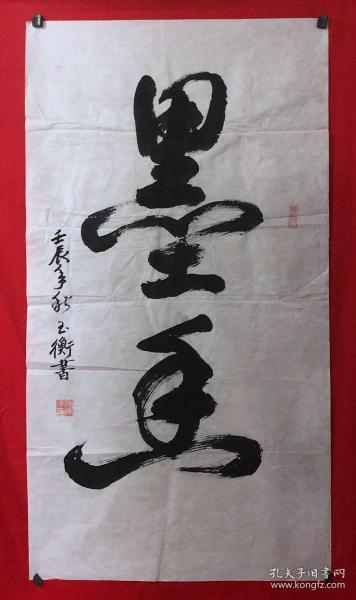 墨
壬辰年秋 玉衡書
孔夫子旧书网
www.kongfz.com